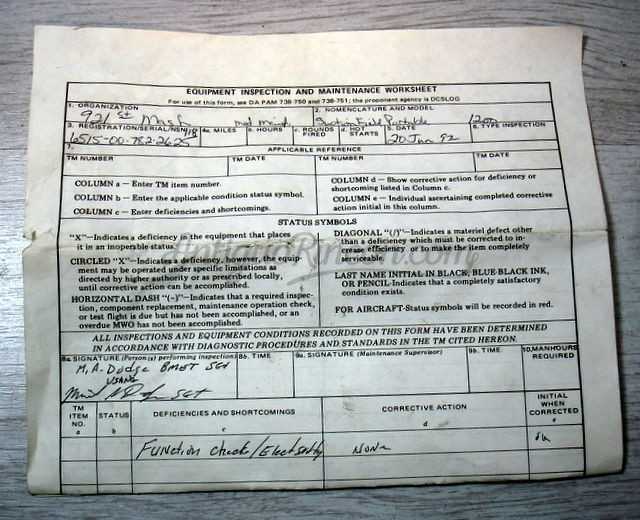 EQUIPMENT INSPECTION AND MAINTENANCE WORKSHEET
For use of this form, see DA PAM 738-750 and 738-751; the proponent agency is DCSLOG
1. ORGANIZATION
921st
2. NOMENCLATURE AND MODEL
Suction Field Portable
3. REGISTRATION/SERIAL/NSN
6515-00-782-2625
4a. MILES
b. HOURS
c. ROUNDS FIRED
d. HOT STARTS
5. DATE
20 Jun 92
6. TYPE INSPECTION
7.
APPLICABLE REFERENCE
TM NUMBER
TM DATE
TM NUMBER
TM DATE
COLUMN a — Enter TM item number.
COLUMN b — Enter the applicable condition status symbol.
COLUMN c — Enter deficiencies and shortcomings.
COLUMN d — Show corrective action for deficiency or
shortcoming listed in Column c.
COLUMN e — Individual ascertaining completed corrective
action initial in this column.
STATUS SYMBOLS
"X"—Indicates a deficiency in the equipment that places
it in an inoperable status.
CIRCLED "X"—Indicates a deficiency, however, the equip-
ment may be operated under specific limitations as
directed by higher authority or as prescribed locally,
until corrective action can be accomplished.
HORIZONTAL DASH "(–)"—Indicates that a required inspec-
tion, component replacement, maintenance operation check,
or test flight is due but has not been accomplished, or an
overdue MWO has not been accomplished.
DIAGONAL "(/)"—Indicates a materiel defect other
than a deficiency which must be corrected to in-
crease efficiency or to make the item completely
serviceable.
LAST NAME INITIAL IN BLACK, BLUE-BLACK INK,
OR PENCIL-Indicates that a completely satisfactory
condition exists.
FOR AIRCRAFT-Status symbols will be recorded in red.
ALL INSPECTIONS AND EQUIPMENT CONDITIONS RECORDED ON THIS FORM HAVE BEEN DETERMINED
IN ACCORDANCE WITH DIAGNOSTIC PROCEDURES AND STANDARDS IN THE TM CITED HEREON.
8a. SIGNATURE (Person(s) performing inspection)
8b. TIME
9a. SIGNATURE (Maintenance Supervisor)
9b. TIME
10. MANHOURS REQUIRED
M.A. Dodge BMET SGT
SGT
TM ITEM NO. a
STATUS b
DEFICIENCIES AND SHORTCOMINGS c
CORRECTIVE ACTION d
INITIAL WHEN CORRECTED e
Function check/
None